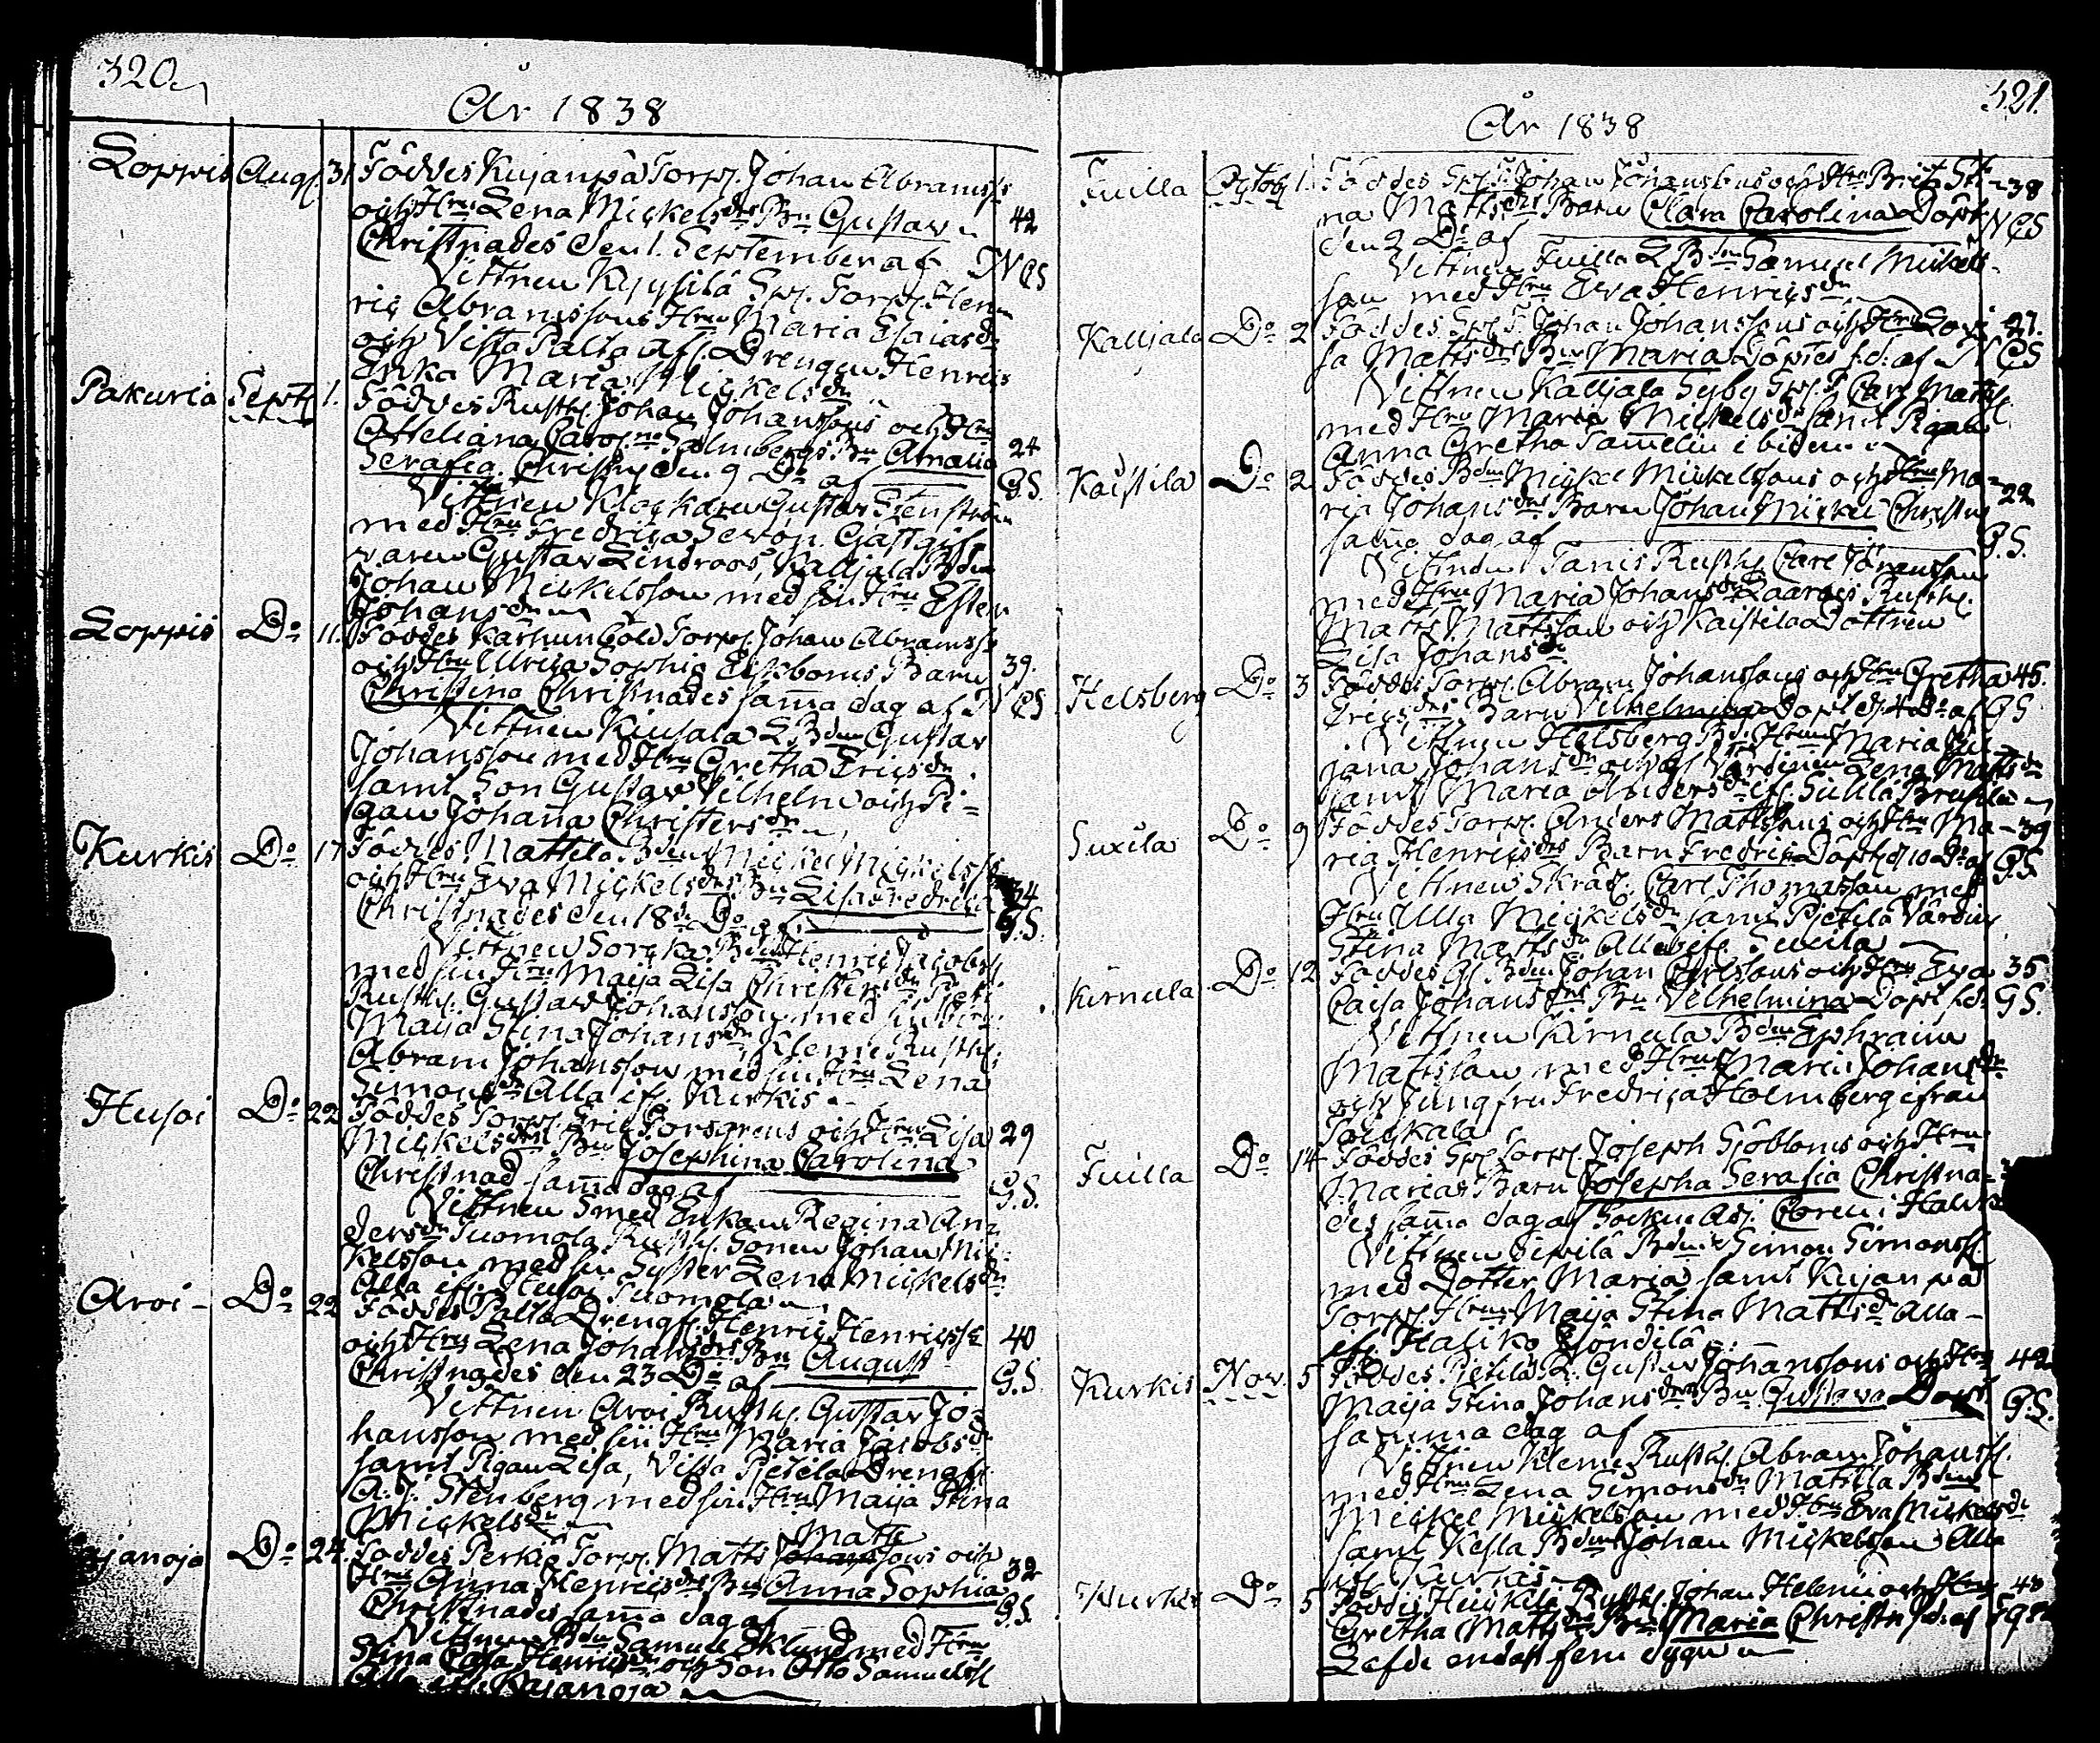 320
År 1838
Loppis Aug. 31 Föddes Kujanpä Torp. Johan Abramss:s
och Hru Lena Mickelsdrs Bn Gustav 42
Christnades den 1. September af NCS
Vittnen Kyysilä Torp. Hen
ric Abramssons Hru Maria Esaiasdr
och Vista Palta Drengen Henrics
Erika Maria Mickelsdr
Pakuria Septb 1. Föddes Rusth. Johan Johanssons och Hru
Otteliana Carol:na Holmbergs Bn Amalia 24
Serafia Christn. den 9 Do af G.S.
Vittnen Klockaren Gustav Stenström
med Hru Fredrica Gästgif
varen Gustav Lindroos, Kalljala Bdn
Johan Mickelsson med sin Hru Ester
Johansdr
Loppis Do 11. Föddes Karhun Torp. Johan Abramss:s
och Hru Ulrica Sophia Barn 39.
Christina Christnades sam̄a dag af NCS
Vittnen Kiusala Bdn Gustav
Johansson med Hru Gretha Ericsdr
samt Son Gustav Vilhelm och Pi-
gan Johan̄a Christersdr
Kurkis Do 17 Föddes Mattila Bdn Mickel Mickelss
och Hru Eva Mickelsdrs Bn Lisa Fredrica 34
Christnades den 18de Do af G.S.
Vittnen Sorcka Bdn Henric Jacobss
med sin Hru Maija Lisa Christersdr
Rusth. Gustav Johansson med sin Hru
Maija Stina Johansdr, Klemi Rusth.
Abram Johansson med sin Hru Lena
Simonsdr Alla if. Kurkis
Husoi Do 22 Föddes Torp. Eric Forsgrens och Hru Lisa
Mickelsdrs Bn Josephina Carolina 29
Christnad sam̄a dag af G.S.
Vittnen Smed Enkan Regina An
dersdr Tuomola Rusth. Sonen Johan Mic
kelsson med sin Syster Lena Mickelsdr
Alla if. Husoi Tuomola
Aroi Do 22 Föddes Palta Drengs. Henric Henricss
och Hru Lena Johansdrs Bn August 40
Christnades den 23 Do af G.S.
Vittnen Aroi Rusth. Gustav Jo-
hansson med sin Hru Maria Jacobsdr
samt Pigan Lisa, Vista Pietilä Drengs
A. J. Stenberg med sin Hru Maija Stina
Mickelsdr
janoja Do 24. Föddes Perkiö Torp. Matts Matts Johanssons och
Hru Anna Henricsdrs Bn Anna Sophia 32
Christnades sam̄a dag af G.S.
Vittnen Bdn Samuel Eklund med Hru
Stina Cajsa Henricsdr och Son Otto Samuelss
Alla if. Kajanoja
321.
År 1838
Fuilla Octob 1. Föddes Johan Johanssons och Hru Brit Sti- 38
na Mattsdrs Barn Clara Carolina Döpt NCS
den 2 Do af
Vittnen Fuilla Bdson Samuel Mickels-
son med Hru Eva Henricsdr
Kalljala Do 2 Föddes Johan Johanssons och Hru Lovi 27.
sa Mattsdrs Bn Maria Döptes s.d. af NCS
Vittnen Kalljala Carl Matss.
med Hru Maria Mickelsdr samt Pigan
Anna Gretha Tamelin ibidem
Kaistila Do 2 Föddes Bdn Mickel Mickelssons och Hru Ma- 22
ria Johansdrs Barn Johan Mickel Christn
sam̄a dag af G.S.
Vittnen Tanis Rusth. Carl Göransson
med Hru Maria Johansdr Rusth.
Matts Mattsson och Kaistila Dottren
Lisa Johansdr
Helsberg Do 3 Föddes Torp. Abram Johanssons och Hru Gretha 45.
Ericsdrs Barn Vilhelmina Döpt d. 4 Do af GS
Vittnen Helsberg Hru Maria Ju
jana Johansdr och Värdinnan Lena Mattsdr
samt Maria Andersdr if. Sucula
Suxila Do 9 Föddes Torp. Anders Mattsons och Hru Ma- 39
ria Henricsdrs Barn Fredrica Döpt d. 10 Do af G.S.
Vittnen Skräd. Carl Thomasson med
Hru Ulla Mickelsdr samt Pietilä Värdin
Stina Mattsdr Alla if. Suxila
Kirnula Do 12 Föddes Bdn Johan Carlssons och Hru Eva 35
Cajsa Johansdrs Bn Vilhelmina Döpt s.d. GS.
Vittnen Kirnula Bdn Ephraim
Mattsson med Hru Maria Johansdr
och Jungfru Fredrica Holmberg ifrån
Fuilla Do 14 Föddes Torp. Joseph Sjöbloms och Hru
Marias Barn Josepha Serafia Christna-
des sam̄a dag af Sockne Adj. Coren i Haliko
Vittnen Bdn Simon Simonss.
med Dotter Maria samt Kujanpä
Torp. Hru Maija Stina Mattsdr alla-
if. Haliko
Kurkis Nov. 5 Föddes Pietilä R. Gustav Johanssons och Hru 42
Maija Stina Johansdrs Bn Gustava Döpt G.S.
samma dag af
Vittnen Klemi Rusth. Abram Johanss.
med Hru Lena Simonsdr Mattila Bdn
Mickel Mickelsson med Hru Eva Mickelsdr
samt Kesla Bdn Johan Mickelsson Alla
if. Kurkis
Kurkis Do 5 Föddes Heickilä Rusth. Johan Helenii och Hru 48
Gretha Mattsdrs Bn Maria Christn. s.d. af
Lefde endast fem dygn